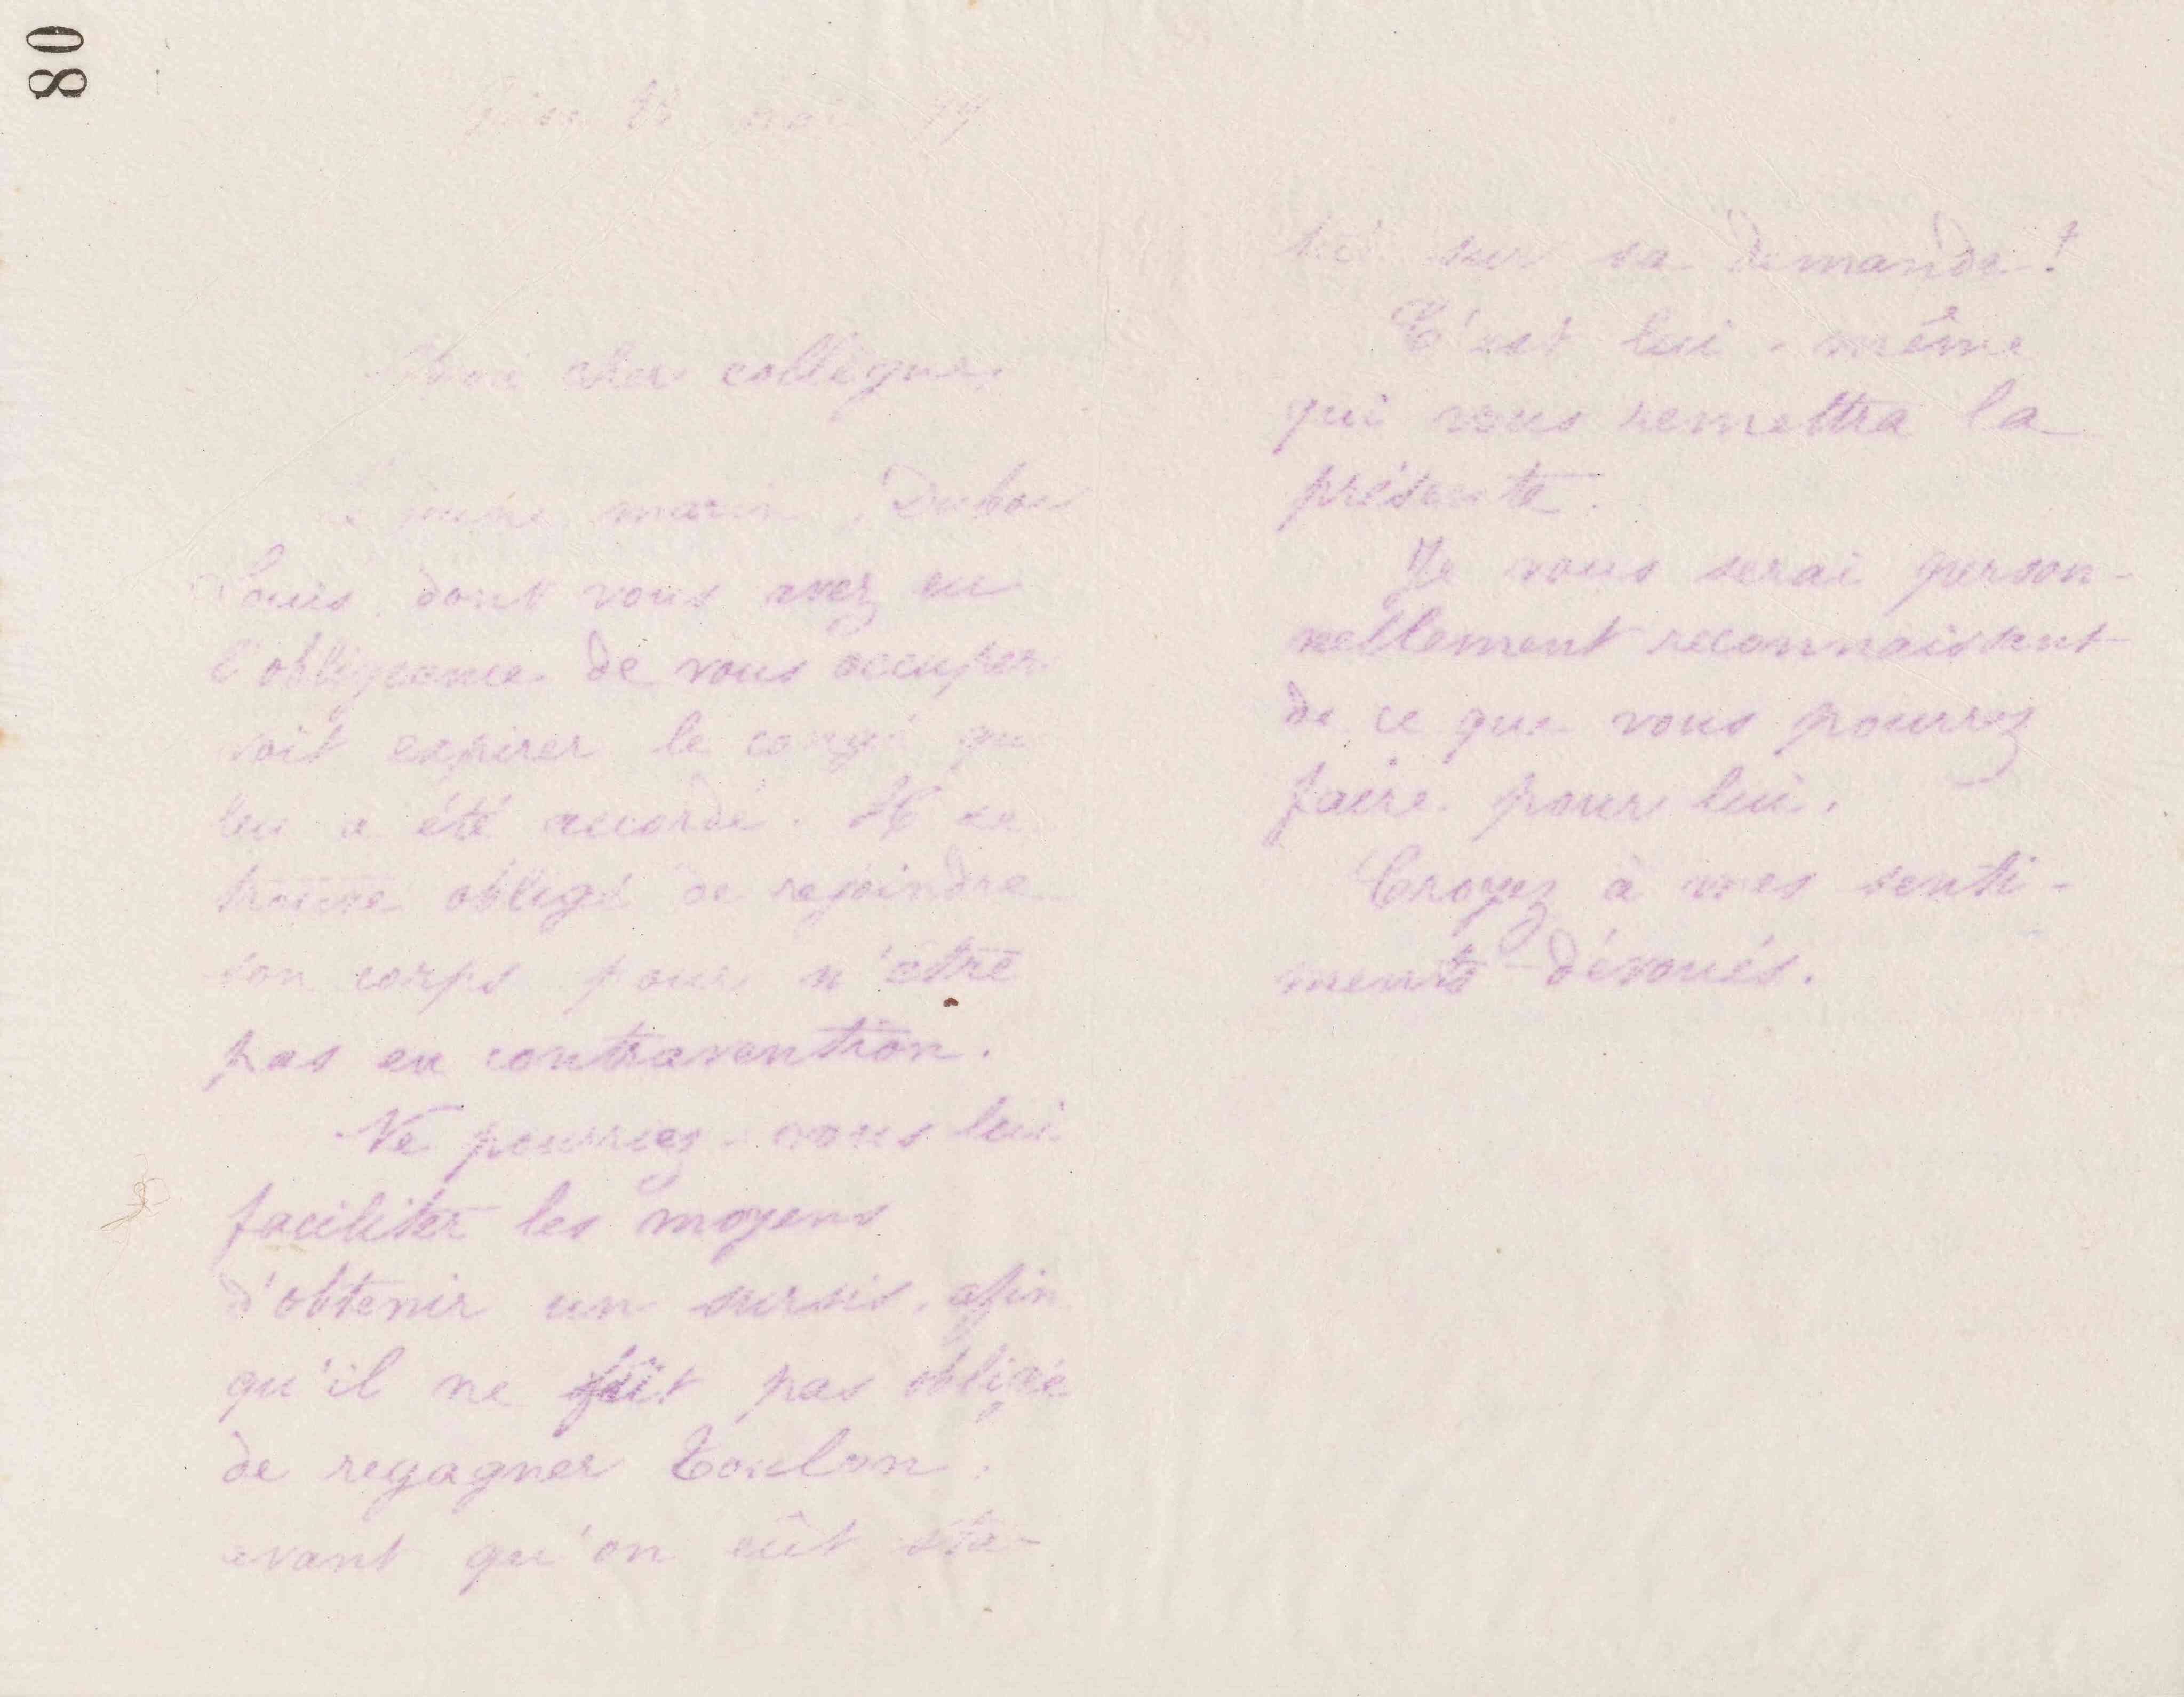 80
Mon cher collègue,
Le jeune marin, Dubois
Louis, dont vous avez eu
l'obligeance de vous occuper
voit expirer le congé qui
lui a été accordé. Il se
trouve obligé de rejoindre
son corps pour n'être
pas en contravention.
Ne pourriez-vous lui
faciliter les moyens
d'obtenir un sursis, afin
qu'il ne fût pas obligé
de regagner Toulon,
avant qu'on eût sta-
tué sur sa demande !
C'est lui-même
qui vous remettra la
présente.
Je vous serai person-
nellement reconnaissant
de ce que vous pourrez
faire pour lui.
Croyez à mes senti-
ments dévoués.